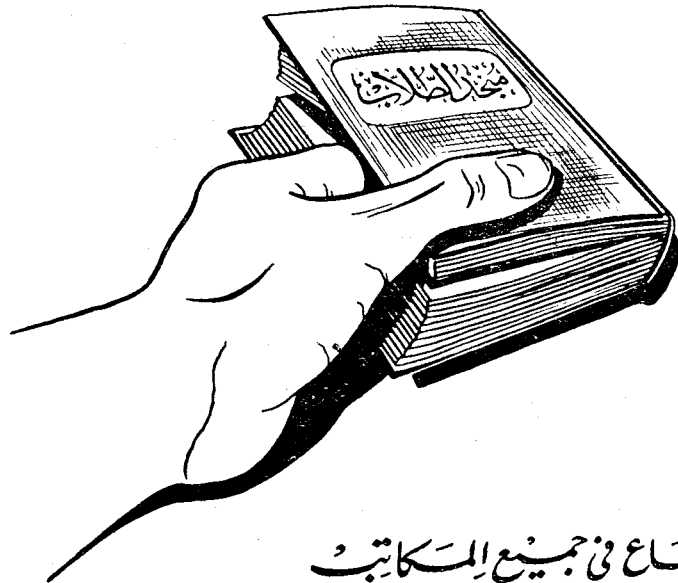 منجد الطلاب
ـاع في جميع المكاتب